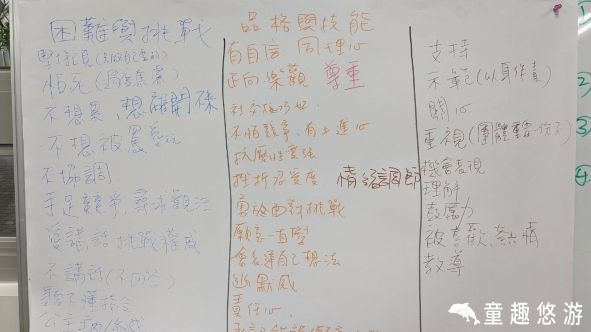 困難與挑戰
怕死(過度焦慮)
不想累,想離開
不想被罵
不協調
手足競爭,尋求觀注
愛講話 挑戰權威
不講話(不回答)
聽不懂指令
公主病
品格與技能
自信 同理心
正向樂觀 尊重
社交技巧好
不怕競爭,有上進心
抗壓性要強
挫折忍受度 情緒調節
勇於面對挑戰
願意一直學
會表達自己想法
幽默感
責任心
支持
示範(以身作責)
關心
重視(團體
機會表現
理解
鼓勵力
被喜歡、熱情
教導
①
②
③
④
童趣悠游